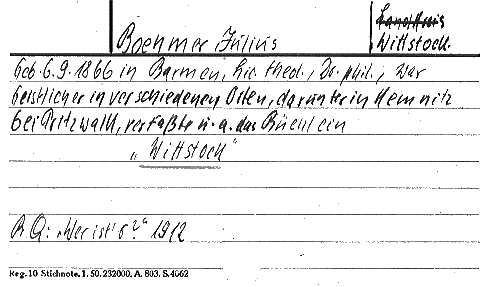 Landkreis
Boehmer Julius Wittstock.
Geb. 6.9.1866 in Barmen, Lic. theol., Dr. phil., war
Geistlicher in verschiedenen Orten, darunter in Kemnitz
bei Pritzwalk, verfaßte u. a. das Büchlein
„Wittstock"
B. Q: „Wer ist's?" 1912
Reg. 10 Stichnote. 1. 50. 232000. A. 803. S. 4062